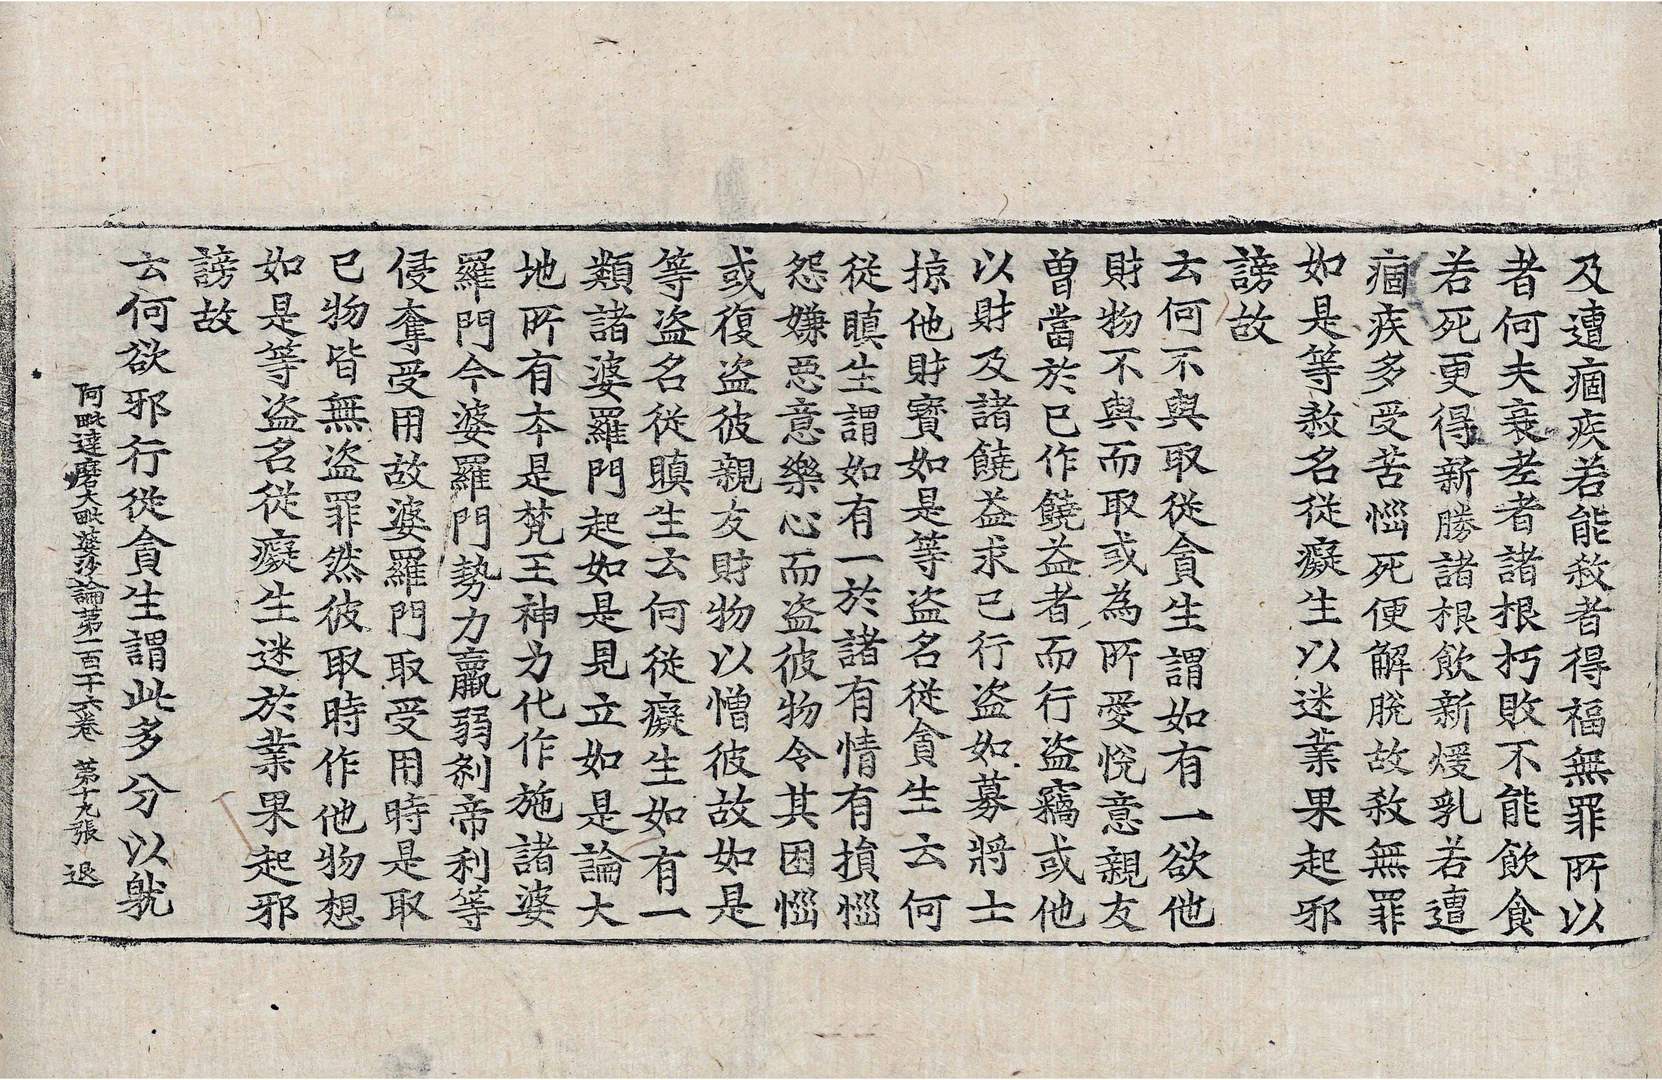 及遭痼疾若能殺者得福無罪所以
者何夫衰老者諸根朽敗不能飲食
若死更得新勝諸根飲新煖乳若遭
痼疾多受苦惱死便解脫故殺無罪
如是等殺名從癡生以迷業果起邪
謗故
云何不與取從貪生謂如有一欲他
財物不與而取或為所愛悅意親友
曾當於已作饒益者而行盜竊或他
以財及諸饒益求已行盜如募將士
掠他財寶如是等盜名從貪生云何
從瞋生謂如有一於諸有情有損惱
怨嫌惡意樂心而盜彼物令其困惱
或復盜彼親友財物以憎彼故如是
等盜名從瞋生云何從癡生如有一
類諸婆羅門起如是見立如是論大
地所有夲是梵王神力化作施諸婆
羅門今婆羅門勢力羸弱剎帝利等
侵奪受用故婆羅門取受用時是取
已物皆無盜罪然彼取時作他物想
如是等盜名從癡生迷於業果起邪
謗故
云何欲邪行從貪生謂此多分以躭
阿毗達磨大毗婆沙論第一百十六卷 第十九張 退